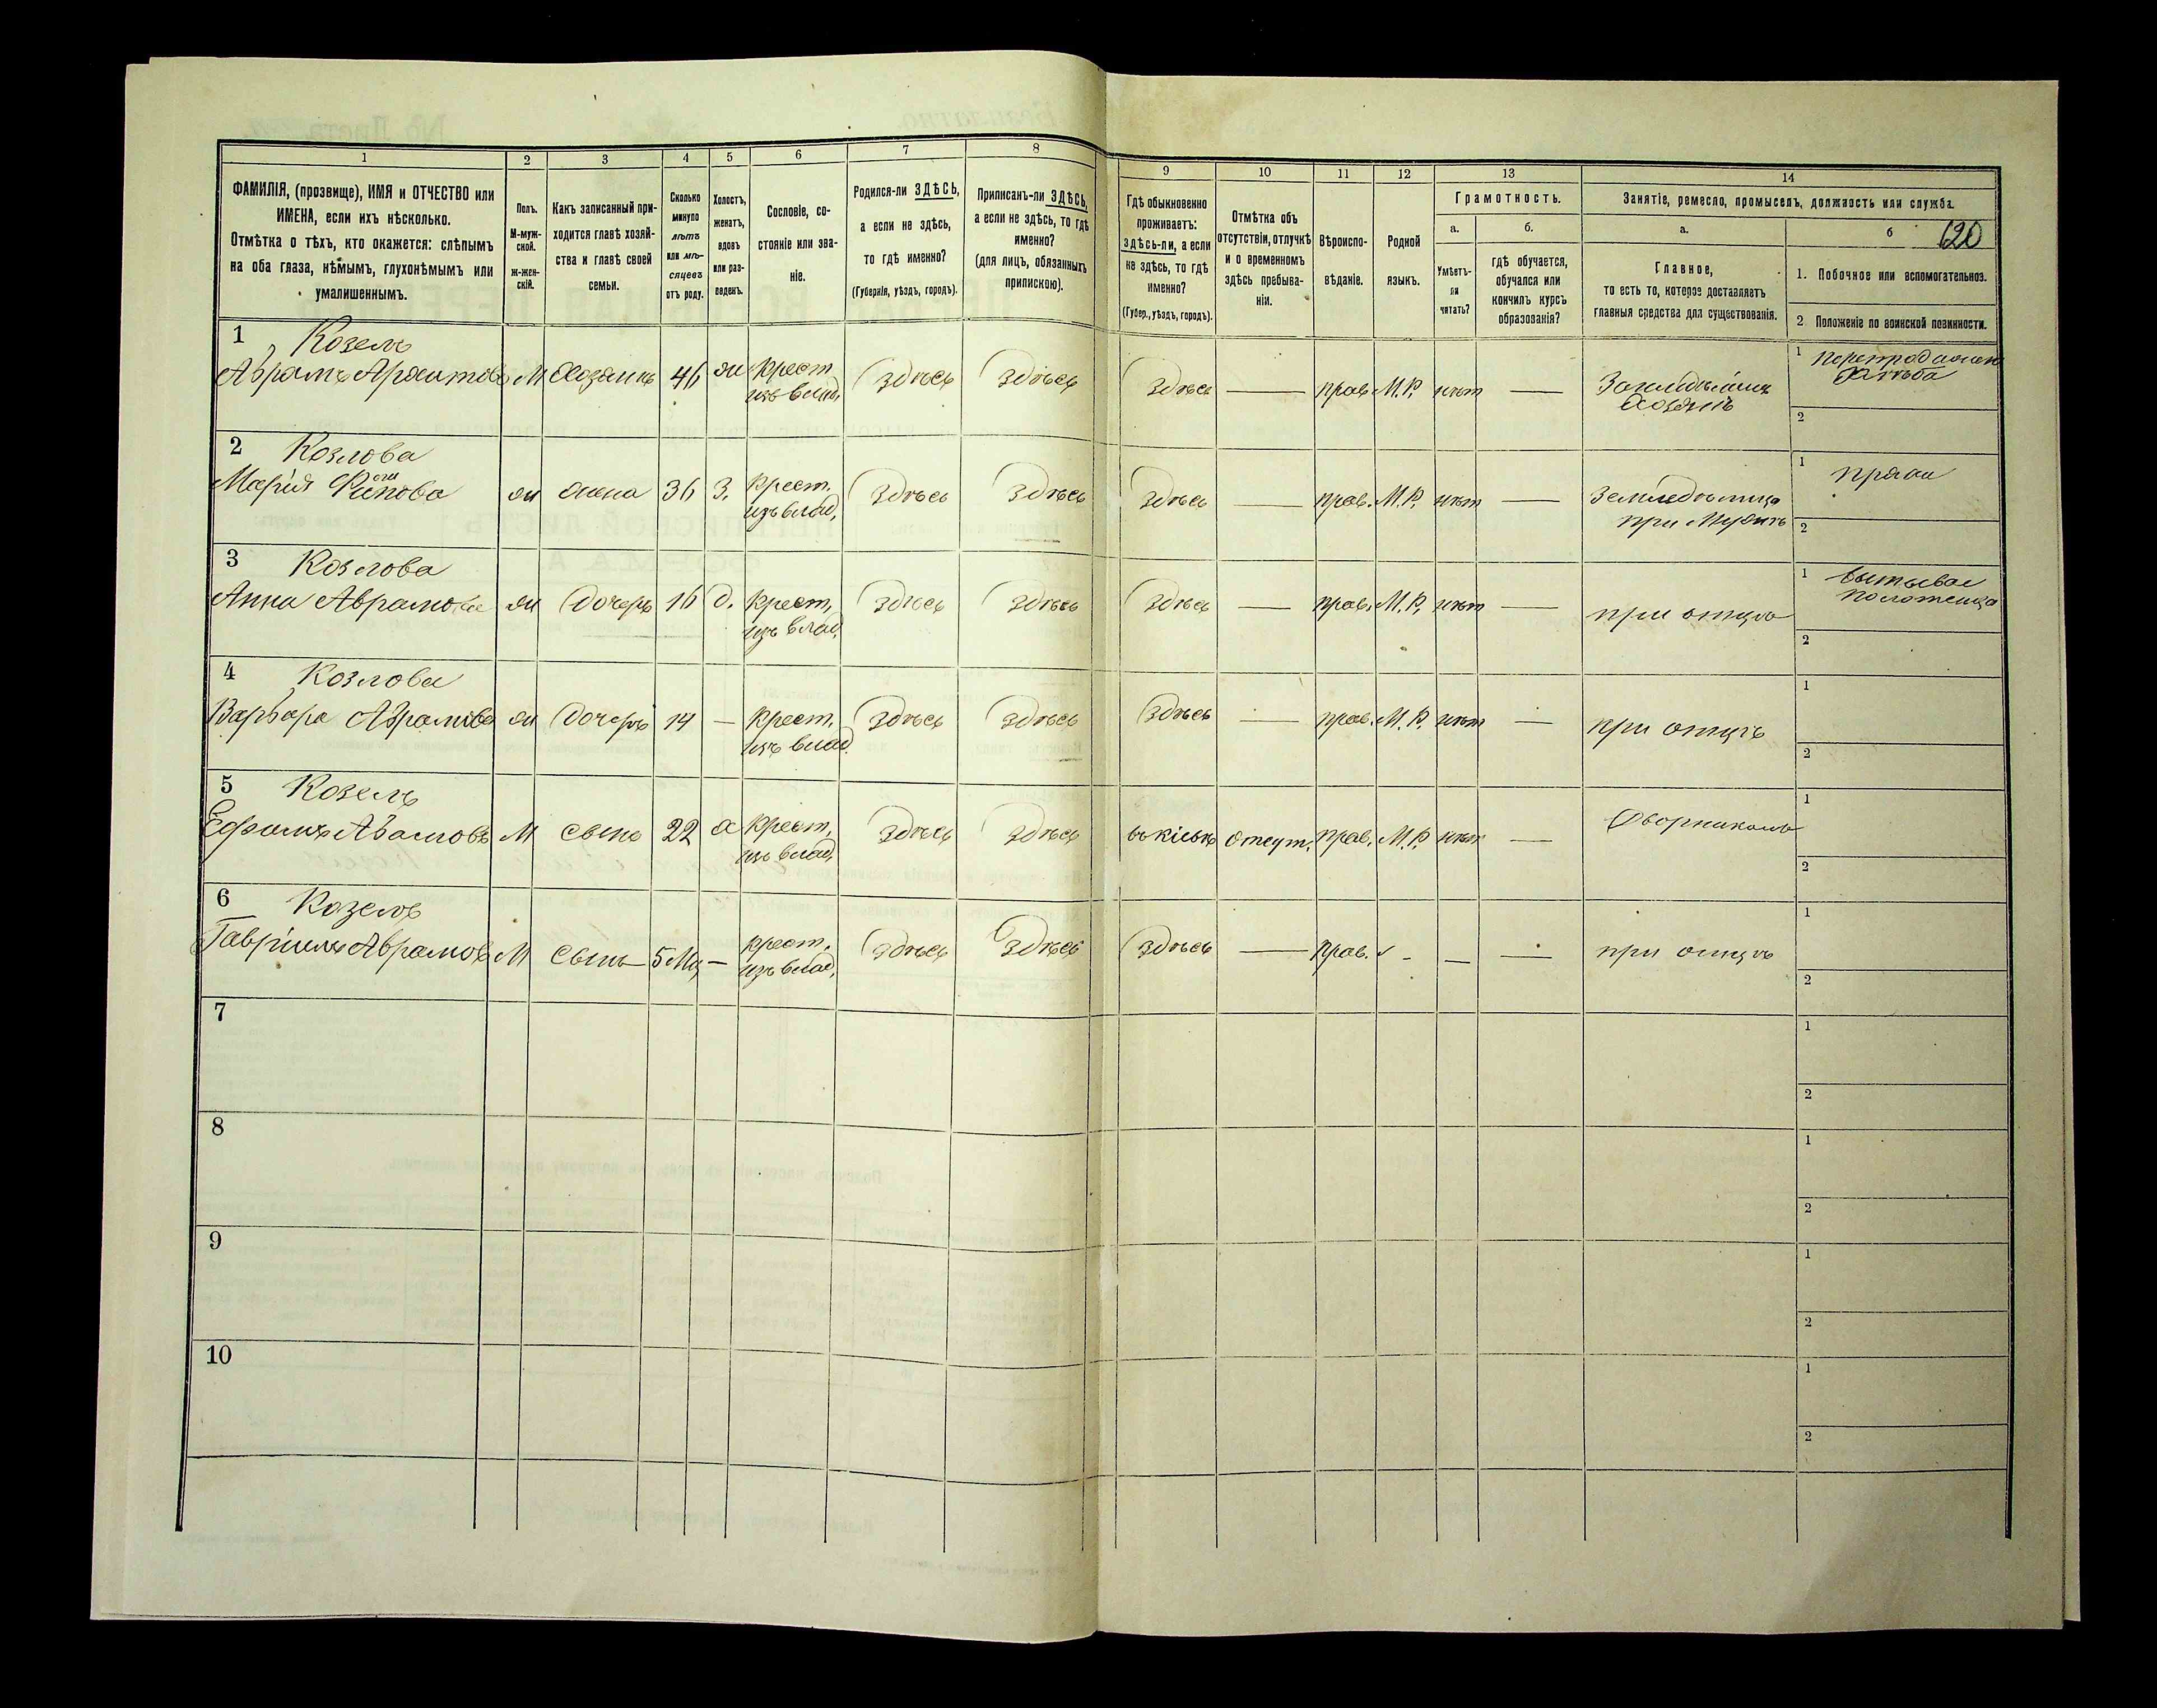 1 2 3 4 5 6 7 8 9 10 11 12 13 14
ФАМИЛІЯ, (прозвище), ИМЯ и ОТЧЕСТВО или
ИМЕНА, если ихъ нѣсколько.
Отмѣтка о тѣхъ, кто окажется: слѣпымъ
на оба глаза, нѣмымъ, глухонѣмымъ или
умалишеннымъ.
Полъ.
М-муж-
ской.
ж-жен-
скій.
Какъ записанный при-
ходится главѣ хозяй-
ства и главѣ своей
семьи.
Сколько
минуло
лѣтъ
или мѣ-
сяцевъ
отъ роду.
Холостъ,
женатъ,
вдовъ
или раз-
веденъ.
Сословіе, со-
стояніе или зва-
ніе.
Родился-ли ЗДѢСЬ,
а если не здѣсь,
то гдѣ именно?
(Губернія, уѣздъ, городъ).
Приписанъ-ли ЗДѢСЬ,
а если не здѣсь, то гдѣ
именно?
(для лицъ, обязанныхъ
припискою).
Гдѣ обыкновенно
проживаетъ:
здѣсь-ли, а если
не здѣсь, то гдѣ
именно?
(Губер., уѣздъ, городъ).
Отмѣтка объ
отсутствіи, отлучкѣ
и о временномъ
здѣсь пребыва-
ніи.
Вѣроиспо-
вѣданіе.
Родной
языкъ.
Грамотность.
а. б.
Умѣетъ-
ли
читать?
гдѣ обучается,
обучался или
кончилъ курсъ
образованія?
Занятіе, ремесло, промыселъ, должность или служба.
а. б 120
Главное,
то есть то, которое доставляетъ
главныя средства для существованія.
1. Побочное или вспомогательное.
2. Положеніе по воинской повинности.
1 Козелъ
Абрамъ М Хозяинъ 46 ж крест. Здѣсь Здѣсь Здѣсь — прав. М.Р. нѣт —
из влад. Хозяинъ
1
2
2 Козлова
Марія ж жена 36 З. Крест. Здѣсь Здѣсь Здѣсь — прав. М.Р. нѣт — Земледѣлица 1 пряжи
изъ влад. при Мужѣ 2
3 Козлова
Анна Аврамова ж Дочерь 16 д. Крест. Здѣсь Здѣсь Здѣсь — прав. М.Р. нѣт — при отцѣ 1
изъ влад. 2
4 Козлова
Варвара Абрамова ж Дочерь 14 — Крест. Здѣсь Здѣсь Здѣсь — прав. М.Р. нѣт — при отцѣ 1
изъ влад. 2
5 Козелъ
М сынъ 22 х Крест. Здѣсь Здѣсь въ Кіевѣ Отсут. прав. М.Р. нѣт — Дворникомъ 1
изъ влад. 2
6 Козелъ
Гавріилъ Абрамовъ М Сынъ 5 Мц — крест. Здѣсь Здѣсь Здѣсь — Прав. — — при отцѣ 1
изъ влад. 2
7 1
2
8 1
2
9 1
2
10 1
2